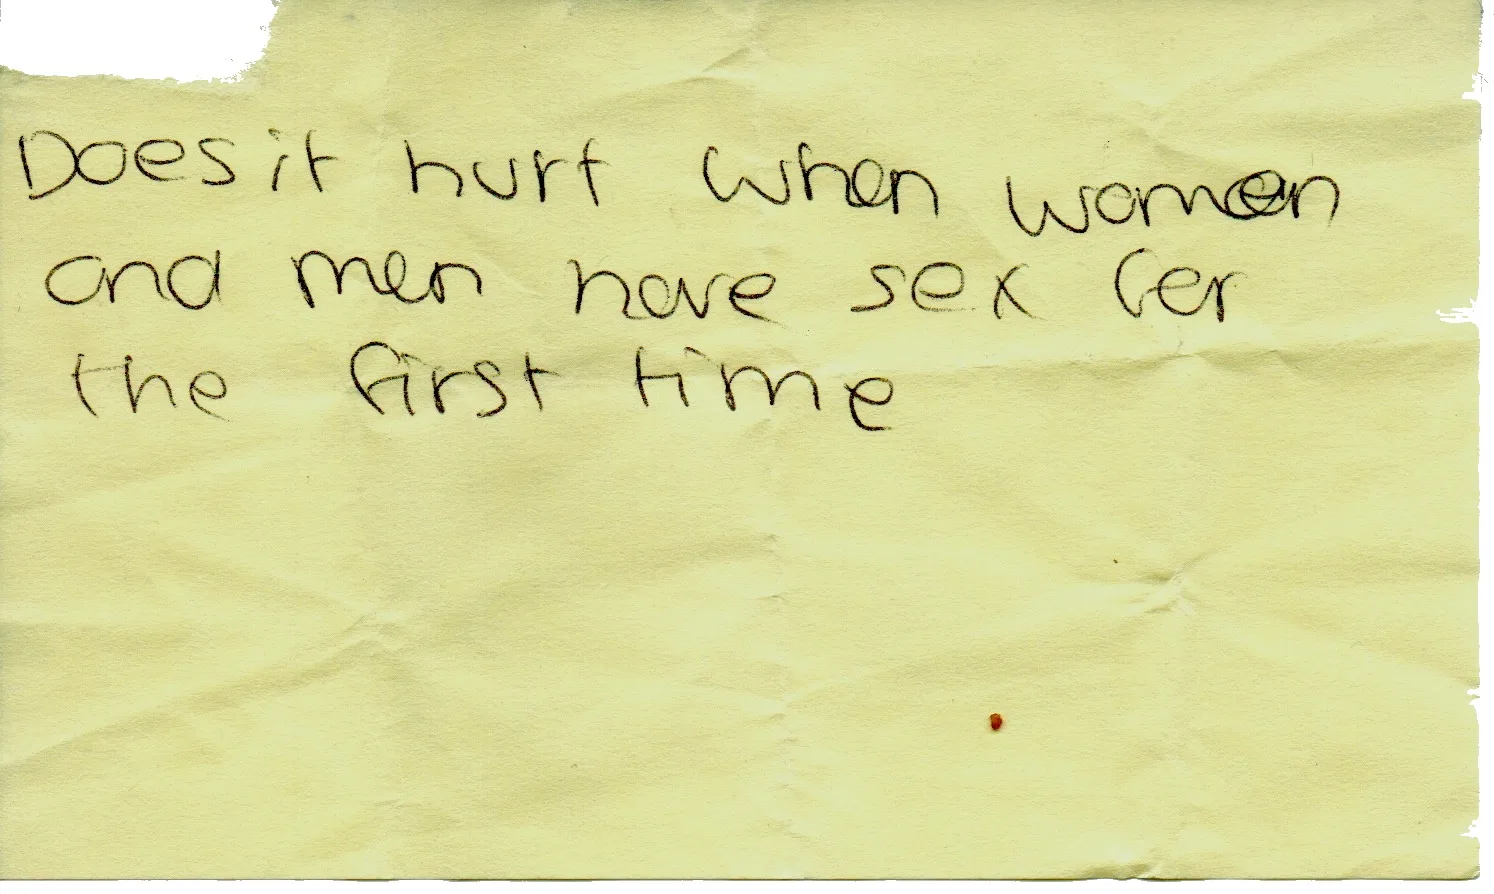 Does it hurt when women
and men have sex fer
the first time